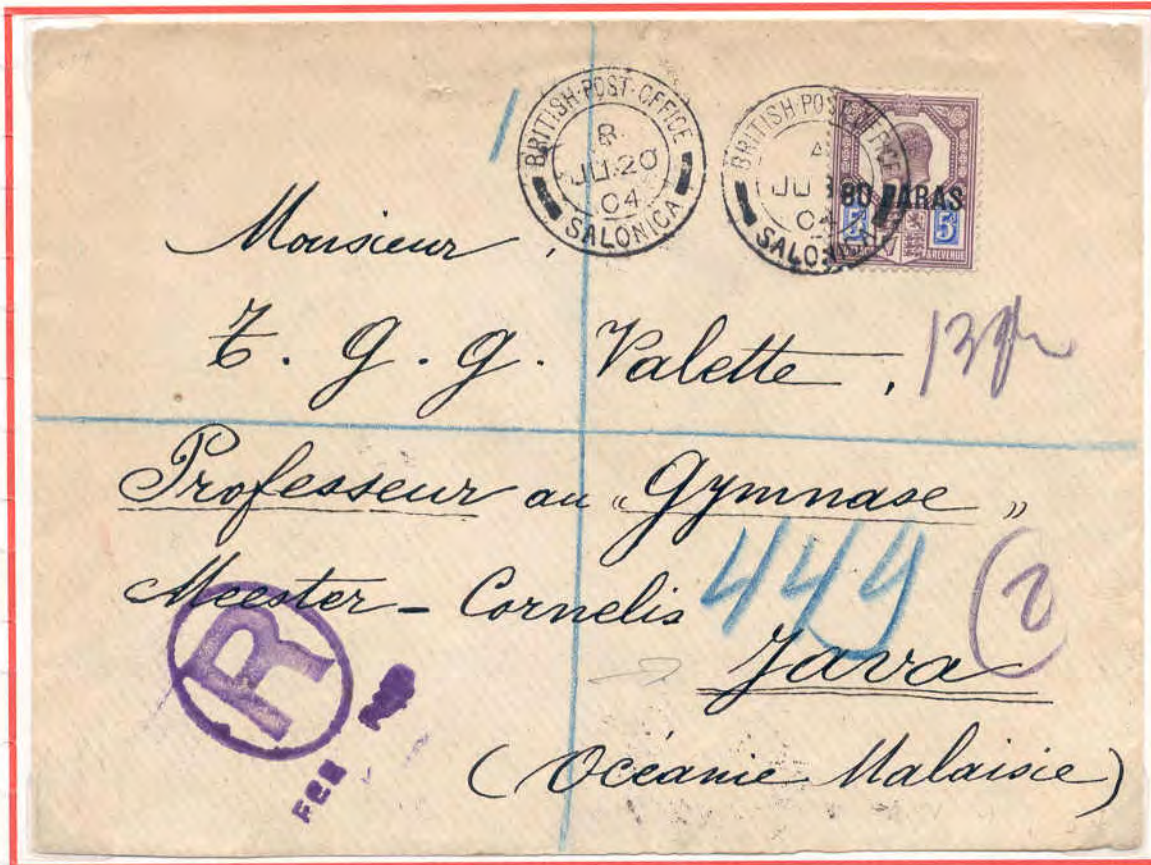 BRITISH·POST·OFFICE
8
JU.20
04
SALONICA
BRITISH·POST OFFICE
JU
04
SALONICA
80 PARAS
5ᵈ 5ᵈ
& REVENUE
Monsieur,
T. G. G. Valette,
Professeur au „Gymnase”
Meester-Cornelis
449
2
Java
R
(Océanie Malaisie)